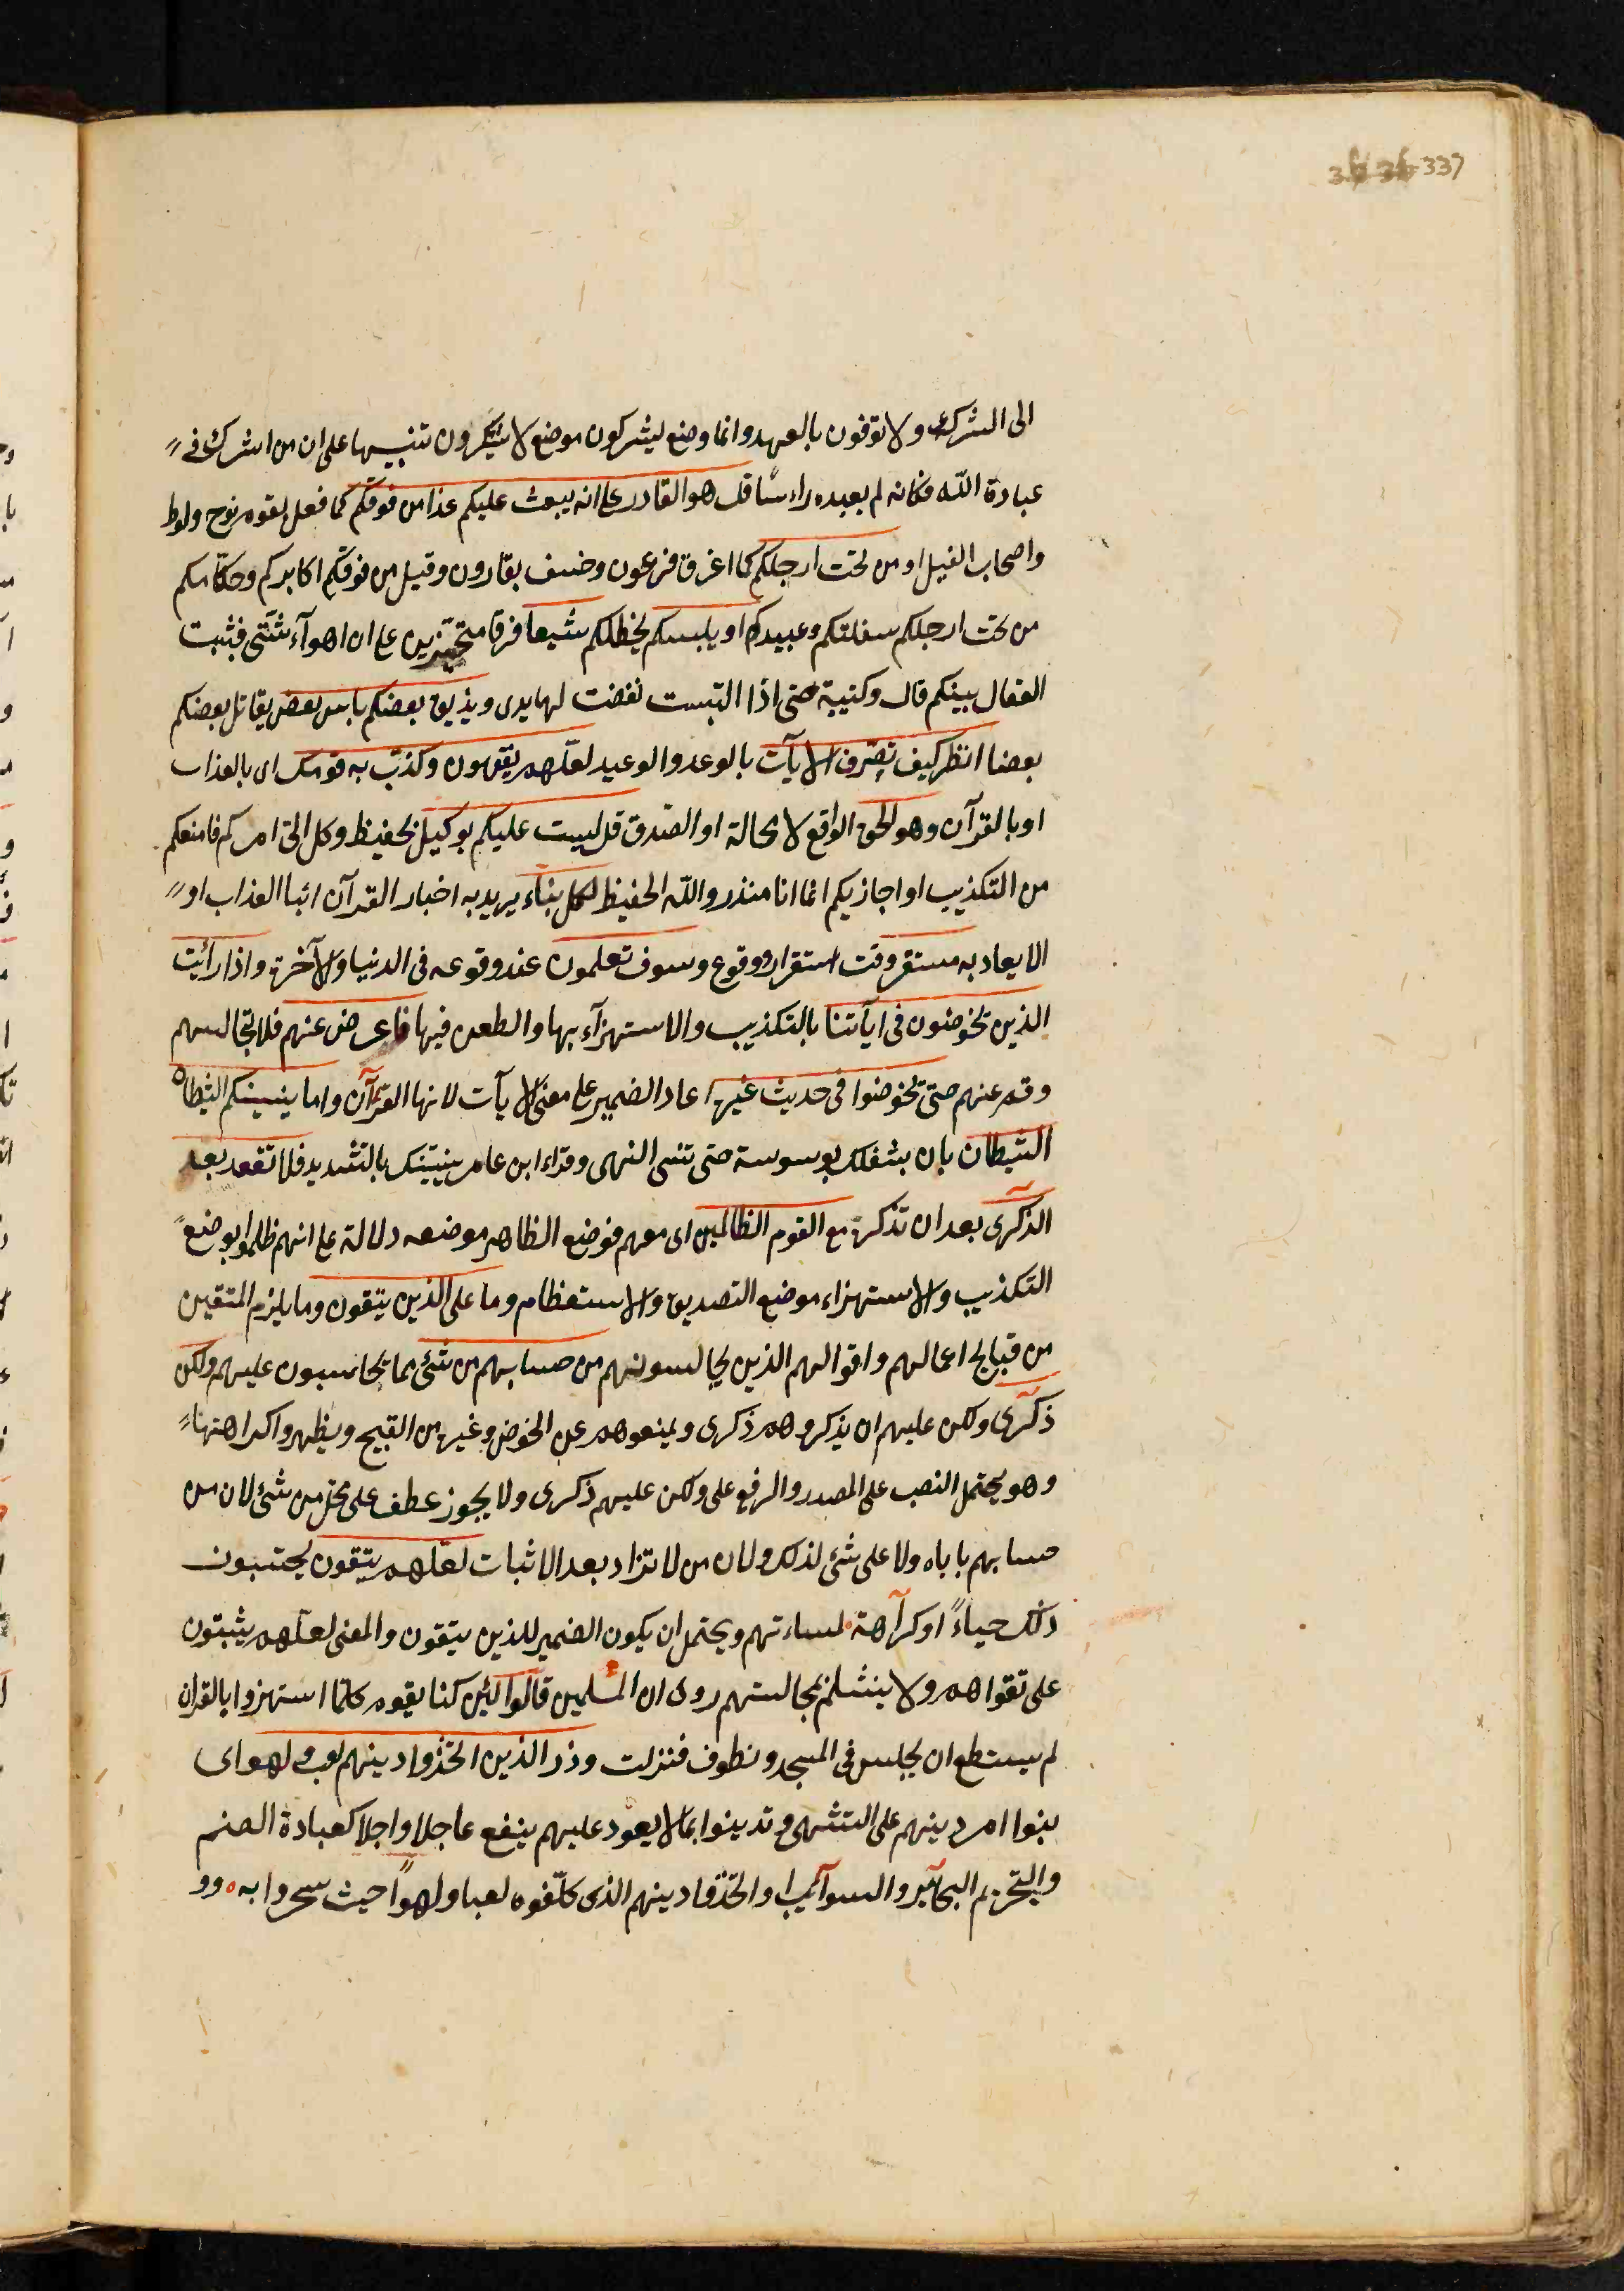 337
الى الشرك ولا توفون بالعهد وانما وضع ليشركون موضع لا يشكرون تنبيها على ان من اشرك في
عبادة الله فكانه لم يعبده راسًا قل هو القادر على انه يبعث عليكم عذا من فوقكم كما فعل لقوم نوح ولوط
واصحاب الفيل او من تحت ارجلكم كما اغرق فرعون وخسف بقارون وقيل من فوقكم اكابركم وحكامكم
من تحت ارجلكم سفلتكم وعبيدكم او يلبسكم يخطلكم شيعا فرقا متحيزين على ان اهوآء شتى فثبت
القفال بينكم قال وكتيبة حتى اذا التبست نفضت لها يدى ويذيق بعضكم باس بعض يقاتل بعضكم
بعضا انظر كيف نصّرف الايآت بالوعد والوعيد لعلّهم يفقهون وكذّب به قومك اى بالعذاب
او بالقرآن وهو الحق الواقع لا محالة او الصّدق قل لست عليكم بوكيل بحفيظ وكل الىّ امركم فامنعكم
من التكذيب او اجازيكم انما انا منذر والله الحفيظ لكل بناء يريد به اخبار القرآن انبا العذاب او
الايعاد به مستقر وقت استقرار ووقوع وسوف تعلمون عند وقوعه فى الدنيا والآخرة واذا رائيت
الذين يخوضون فى ايآتنا بالتكذيب والاستهزآء بها والطعن فيها فاعرض عنهم فلا تجالسهم
وقم عنهم حتى يخوضوا فى حديث غيره اعاد الضمير على معنى الايآت لانها القرآن واما ينسينكم الشيطان
الشيطان بان يشغلك بوسوسة حتى تنسى النهى وقراء ابن عامر ينسّينك بالتشديد فلا تقعد بعد
الذكرى بعد ان تذكره مع القوم الظالمين اى معهم فوضع الظاهر موضعه دلالة على انهم ظلموا بوضع
التكذيب والاستهزاء موضع التصديق والاستعظام وما على الذين يتقون وما يلزم المتقين
من قبايح اعمالهم واقوالهم الذين يجالسونهم من حسابهم من شئ مما يحاسبون عليهم ولكن
ذكرى ولكن عليهم ان يذكروهم ذكرى ويمنعوهم عن الخوض وغيره من القبيح ويظهروا كراهتها
وهو يحتمل النصب على المصدر والرفع على ولكن عليهم ذكرى ولا يجوز عطف على محل من شئ لان من
حسابهم باباه ولا على شئ لذلك ولان من لا تزاد بعد الاثبات لعلهم يتقون يجتنبون
ذلك حياءً او كرآهة لمساءتهم ويحتمل ان يكون الضمير للذين يتقون والمعنى لعلهم يثبتون
على تقواهم ولا ينثلم بمجالستهم روى ان المسلمين قالوا لئن كنا يقوم كلما استهزوا بالقران
لم يستطع ان يجلس فى المسجد ونطوف فنزلت وذر الذين اتخذوا دينهم لعب ولهو اى
بنوا امر دينهم على التشهى وتدينوا بما لا يعود عليهم بنفع عاجلا واجلا كعبادة الصنم
والتحريم البحآئر والسوآئب او اتخذوا دينهم الذى كلّفوه لعبا ولهوًا حيث سخروا به